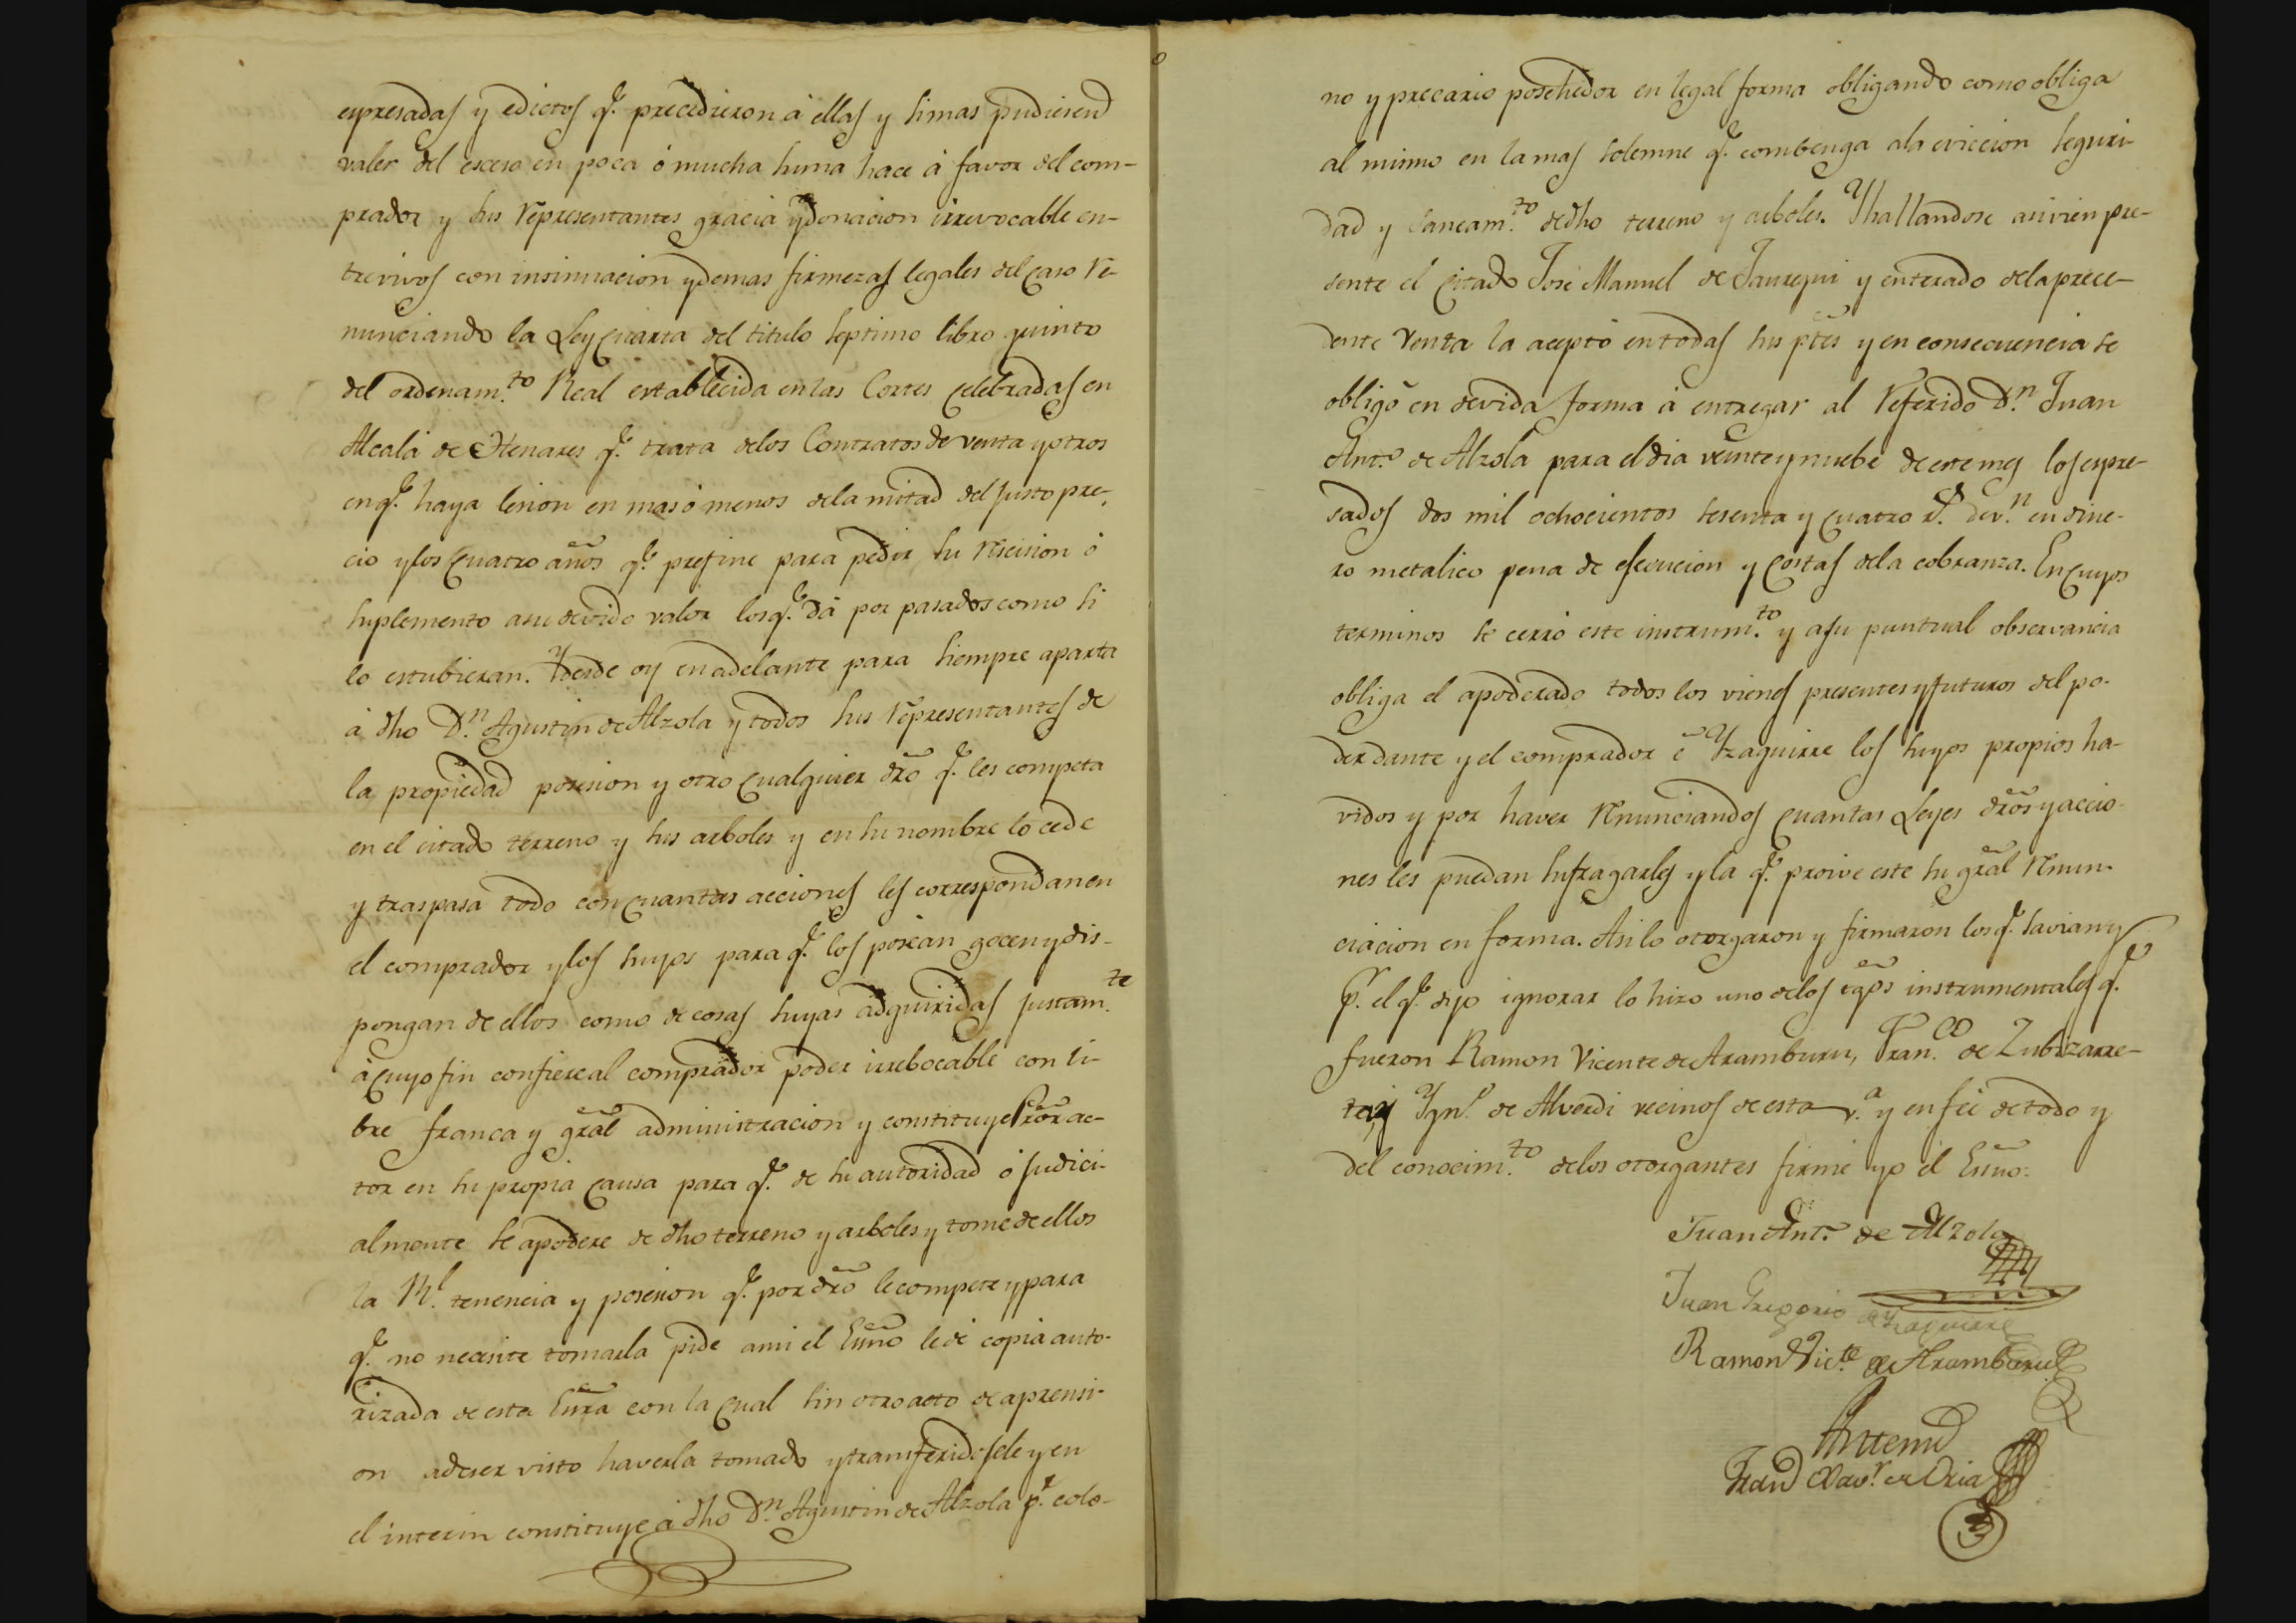 expresadas y edictos q.e precedieron á ellas y si mas pudiesen
valer del exceso en poca ó mucha suma hace á favor del com-
prador y sus representantes gracia y donacion irrevocable en-
trevivos con insinuacion y demas firmezas legales del caso re-
nunciando la Ley cuarta del titulo septimo libro quinto
del ordenam.to Real establecida en las Cortes celebradas en
Alcalá de Henares q.e trata de los Contratos de venta y otros
en q.e haya lesion en mas ó menos de la mitad del justo pre-
cio y los cuatro años q.e prefine para pedir su rescision ó
suplemento a su devido valor los q.e dá por pasados como si
lo estubieran. Y desde oy en adelante para siempre aparta
á dho D.n Agustin de Alzola y todos sus representantes de
la propiedad posesion y otro cualquier dro q.e les competa
en el citado terreno y sus arboles y en su nombre lo cede
y traspasa todo con cuantas acciones les correspondan en
el comprador y los suyos para q.e los posean gocen y dis-
pongan de ellos como de cosas suyas adquiridas justam.te
á cuyo fin confiere al comprador poder irrebocable con li-
bre franca y gral administracion y constituye Pror ac-
tor en su propia causa para q.e de su autoridad ó judici-
almente se apodere de dho terreno y arboles y tome de ellos
la Rl. tenencia y posesion q.e por dro le compete y para
q.e no necesite tomarla pide a mi el Essno le dé copia auto-
rizada de esta Essra con la cual sin otro acto de aprensi-
on a de ser visto haverla tomado y transferidosele y en
el interin constituye á dho D.n Agustin de Alzola p.r colo-
no y precario posehedor en legal forma obligando como obliga
al mismo en la mas solemne q.e combenga a la eviccion seguri-
dad y saneam.to de dho terreno y arboles. Y hallandose asi vien pre-
sente el citado José Manuel de Jauregui y enterado de la prece-
dente venta la aceptó en todas sus ptes y en consecuencia se
obligó en devida forma á entregar al referido D.n Juan
Ant.o de Alzola para el dia veinte y nuebe de este mes los expre-
sados dos mil ochocientos sesenta y cuatro r.s de v.n en dine-
ro metalico pena de ejecucion y costas de la cobranza. En cuyos
terminos se cerró este instrum.to y a su puntual observancia
obliga el apoderado todos los vienes presentes y futuros del po-
derdante y el comprador é Yzaguirre los suyos propios ha-
vidos y por haver renunciandos cuantas Leyes dros y accio-
nes les puedan sufragarles y la q.e proive este su gral renun-
ciacion en forma. Asi lo otorgaron y firmaron los q.e savian y
p.r el q.e dijo ignorar lo hizo uno de los tgos instrumentales q.e
fueron Ramon Vicente de Aramburu, Fran.co de Zubizarre-
ta, y Ygn.o de Alverdi vecinos de esta v.a y en feé de todo y
del conocim.to de los otorgantes firmé yo el Essno.
Juan Ant.o de Alzola
Juan Gregorio de Yzaguirre
Ramon Vic.te de Aramburu
Antemi